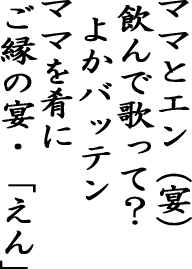 ママとエン（宴）
飲んで歌って？
よかバッテン
ママを肴に
ご縁の宴・「えん」